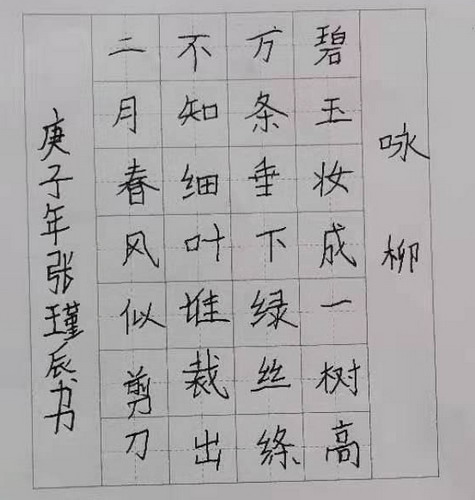 咏柳
碧玉妆成一树高
万条垂下绿丝绦
不知细叶谁裁出
二月春风似剪刀
庚子年张瑾辰书